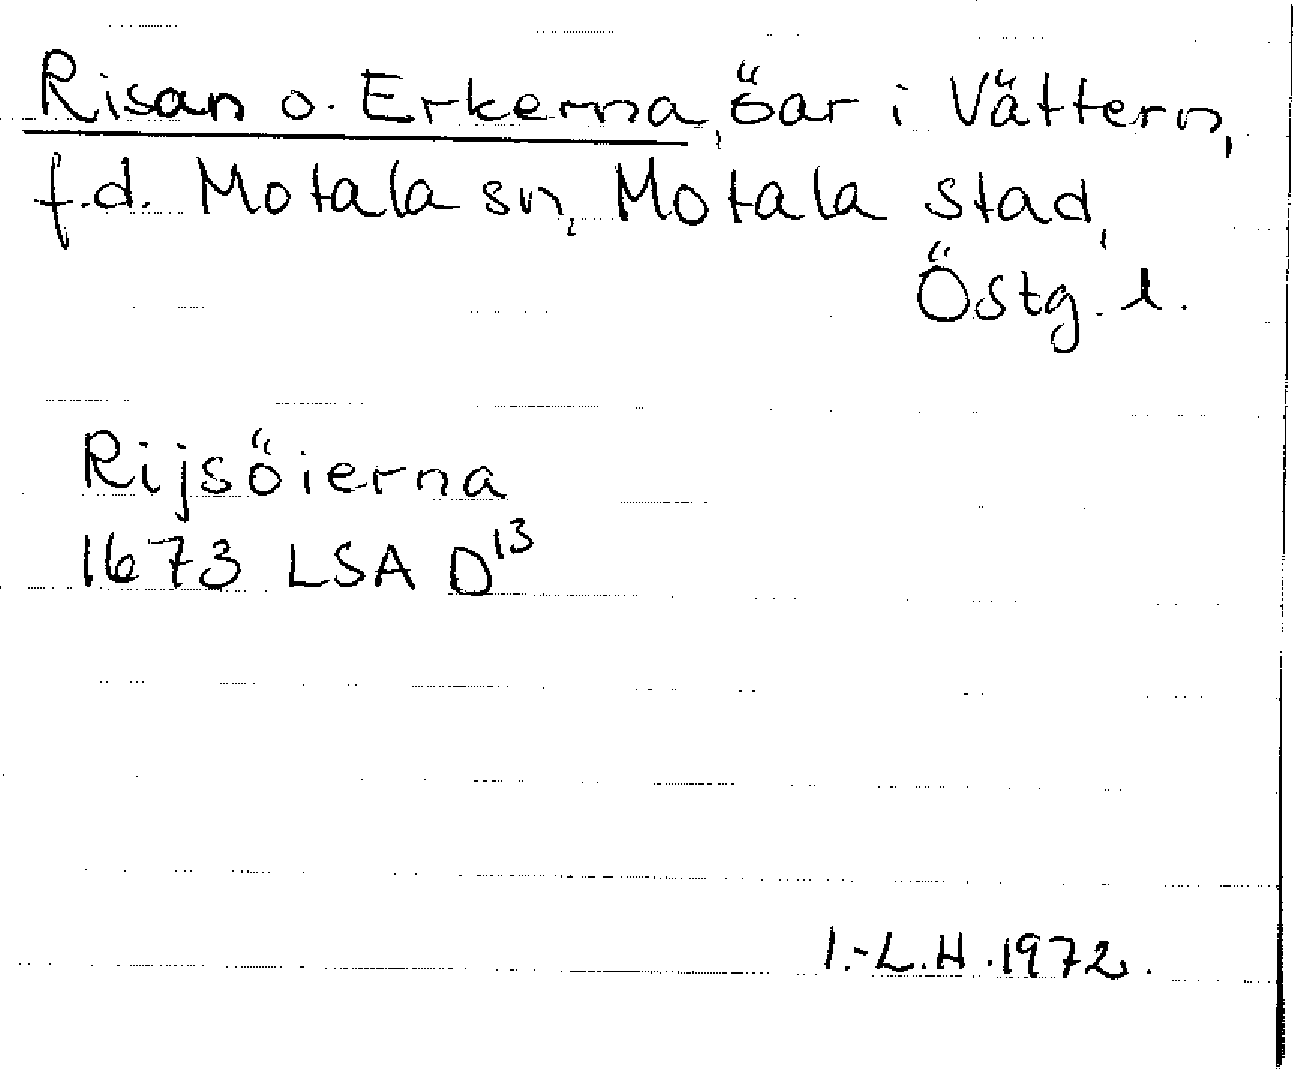 Risan o. Erkerna, öar i Vättern,
f.d. Motala sn, Motala stad,
Östg. l.
Rijsöierna
1673 LSA D13
I.-L.H. 1972.